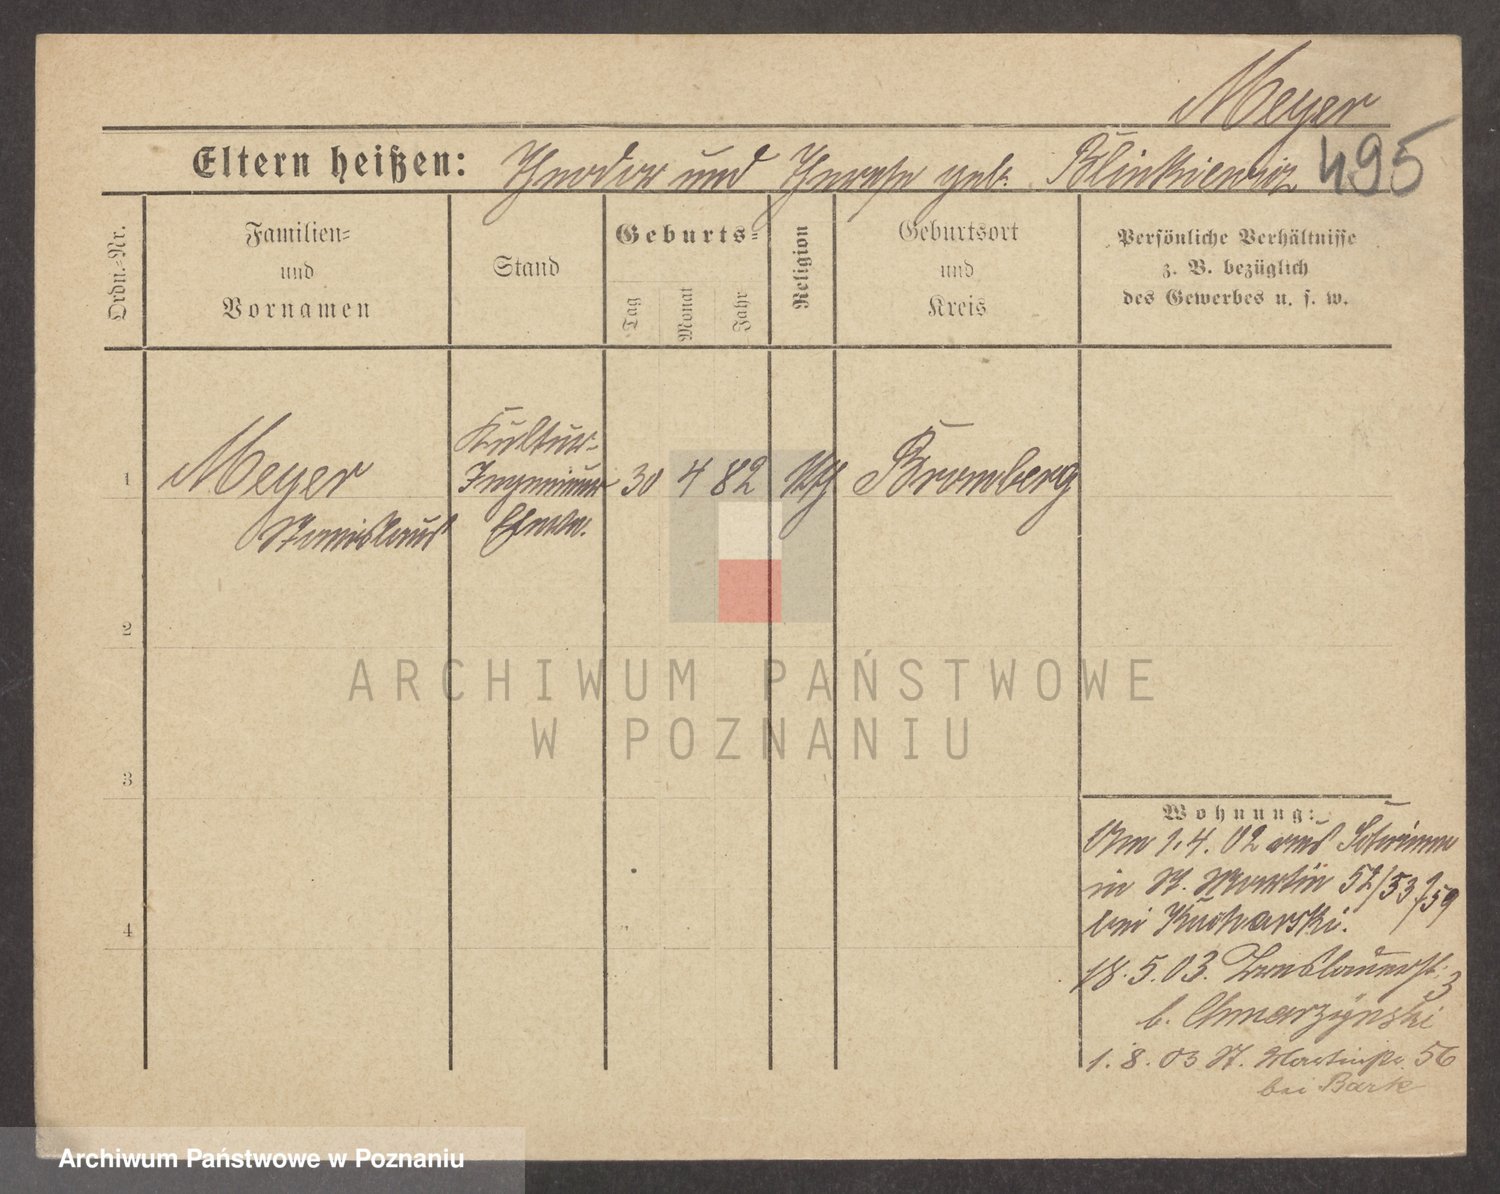 Meyer
Eltern heißen: Theodor und Therese geb. Blinkiewicz 495
Ordn.-Nr.
Familien-
und
Vornamen
Stand
Geburts-
Tag
Monat
Jahr
Religion
Geburtsort
und
Kreis
Persönliche Verhältnisse
z. B. bezüglich
des Gewerbes u. s. w.
1
Meyer
Stanislaus
Kultur-
Ingenieur
30 4 82
Bromberg
2
3
4
Wohnung:
Am 1.4.02 aus
in St. Martin 52/53 /59
bei Kucharski.
18.5.03. Breslauerst. 3
b. Chmarzynski
1.8.03 St. Martinstr. 56
bei Bark
ARCHIWUM PAŃSTWOWE
W POZNANIU
Archiwum Państwowe w Poznaniu